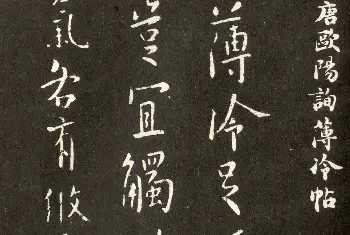 唐歐陽詢薄冷帖
薄冷足
豈宜觸
氣各有攸